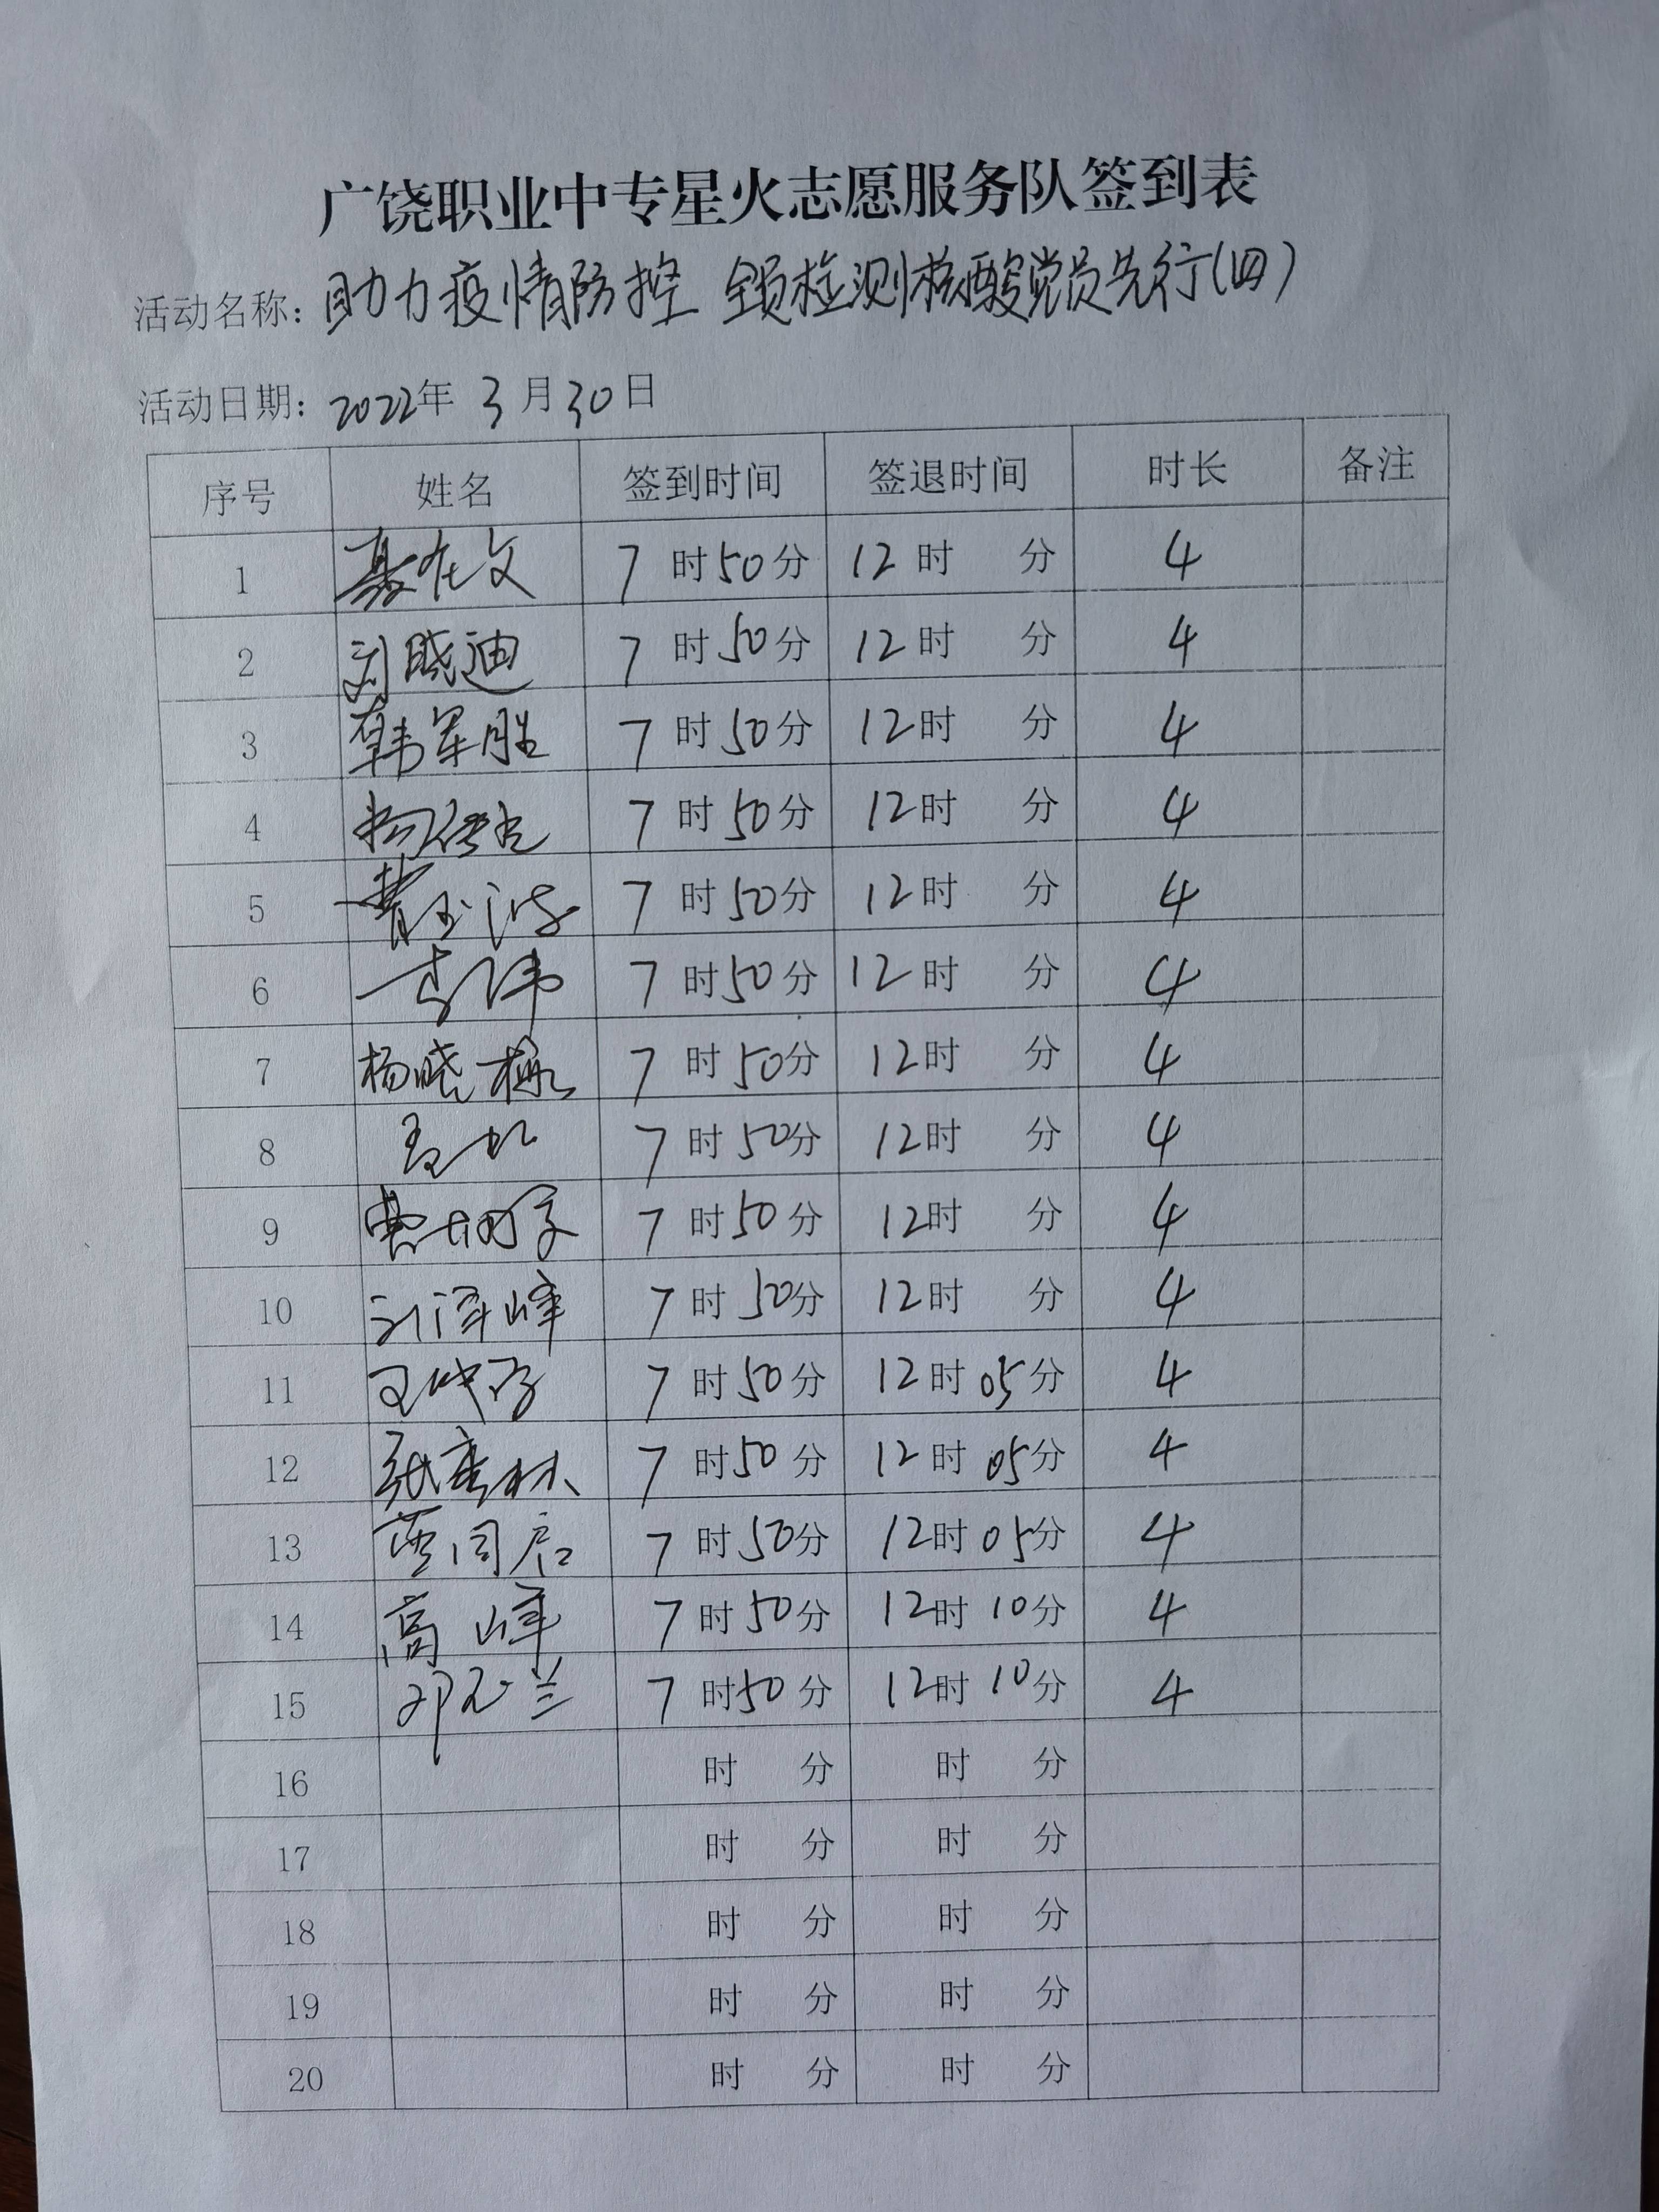 广饶职业中专星火志愿服务队签到表
活动名称：助力疫情防控 全员检测核酸党员先行(四)
活动日期：2022年 3月30日
序号 姓名 签到时间 签退时间 时长 备注
1 聂在文 7时50分 12时 分 4
2 刘晓迪 7时50分 12时 分 4
3 韩军胜 7时50分 12时 分 4
4 7时50分 12时 分 4
5 7时50分 12时 分 4
6 李伟 7时50分 12时 分 4
7 杨晓梅 7时50分 12时 分 4
8 7时50分 12时 分 4
9 7时50分 12时 分 4
10 刘泽峰 7时50分 12时 分 4
11 7时50分 12时05分 4
12 7时50分 12时05分 4
13 7时50分 12时05分 4
14 高峰 7时50分 12时10分 4
15 邓玉兰 7时50分 12时10分 4
16 时 分 时 分
17 时 分 时 分
18 时 分 时 分
19 时 分 时 分
20 时 分 时 分